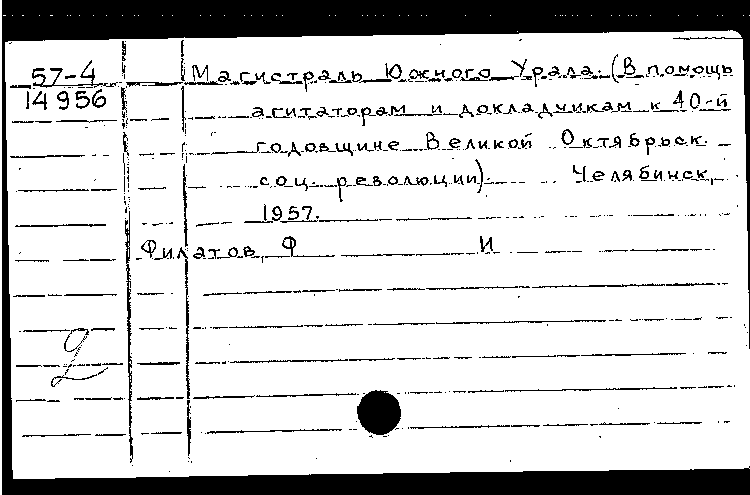 57-4 Магистраль Южного Урала. (В помощь
14956 агитаторам и докладчикам к 40-й
годовщине Великой Октябрьск.
соц. революции). Челябинск,
1957.
Филатов, Ф И
2